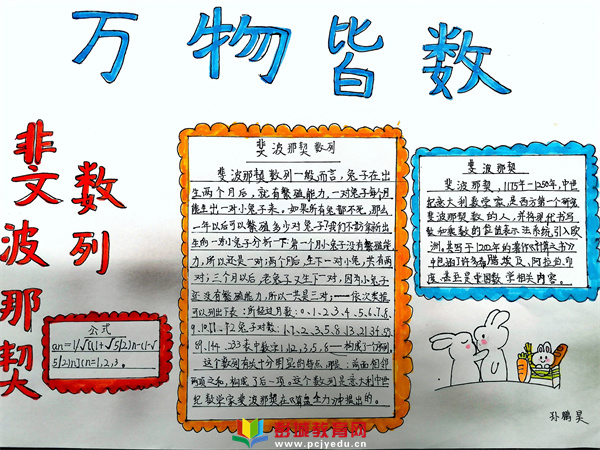 万物皆数
斐波那契
数列
公式
an=1/√5[(1+√5/2)n-(1-√
5/2)n](n=1,2,3.
斐波那契数列
斐波那契数列一般而言，兔子在出
生两个月后，就有繁殖能力，一对兔子每个月
能生出一对小兔子来，如果所有兔都不死，那么
一年以后可以繁殖多少对兔子?我们不妨拿新出
生的一对小兔子分析一下:第一个月小兔子没有繁殖能
力，所以还是一对;两个月后，生下一对小兔，共有两
对;三个月以后，老兔子又生下一对，因为小兔子
还没有繁殖能力，所以一共是三对;——依次类推
可以列出下表:所经过月数:0、1、2、3、4、5、6、7、8、
9、10、11、12兔子对数:1、1、2、3、5、8、13、21、34、55、
89、144、233表中数字1、1、2、3、5、8——构成了一个数列。
这个数列有十分明显的特点，那是:前面相邻
两项之和，构成了后一项。这个数列是意大利中世
纪数学家斐波那契在《算盘全书》中提出的。
斐波那契
斐波那契，1175年-1250年，中世
纪意大利数学家，是西方第一个研究
斐波那契数的人，并将现代书写
数和乘数的位值表示法系统引入欧
洲。其写于1202年的著作《计算之书》
中包含了许多希腊、埃及、阿拉伯、印
度、甚至是中国数学相关内容。
孙鹏昊
彭城教育网
www.pcjyedu.cn